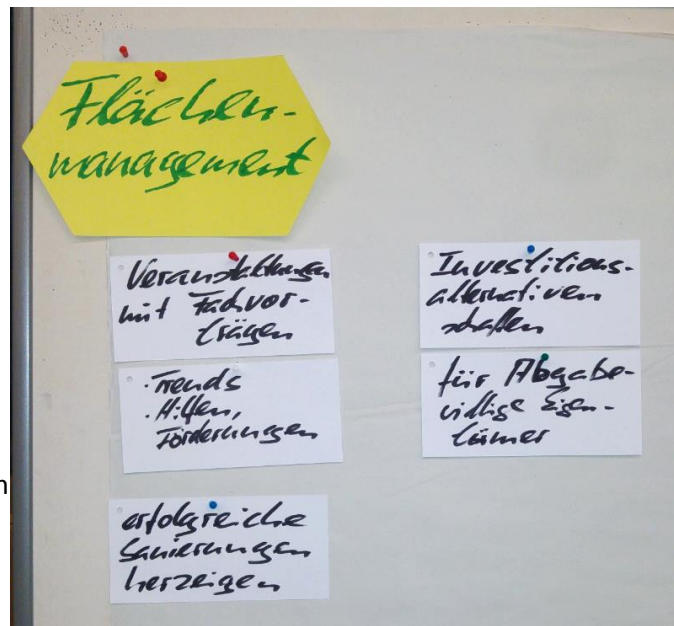 Flächen-
management
Veranstaltungen
mit Fachvor-
trägen
· Trends
· Hilfen,
Förderungen
erfolgreiche
Sanierungen
herzeigen
Investitions-
alternativen
schaffen
für Abgabe-
willige Eigen-
tümer
n